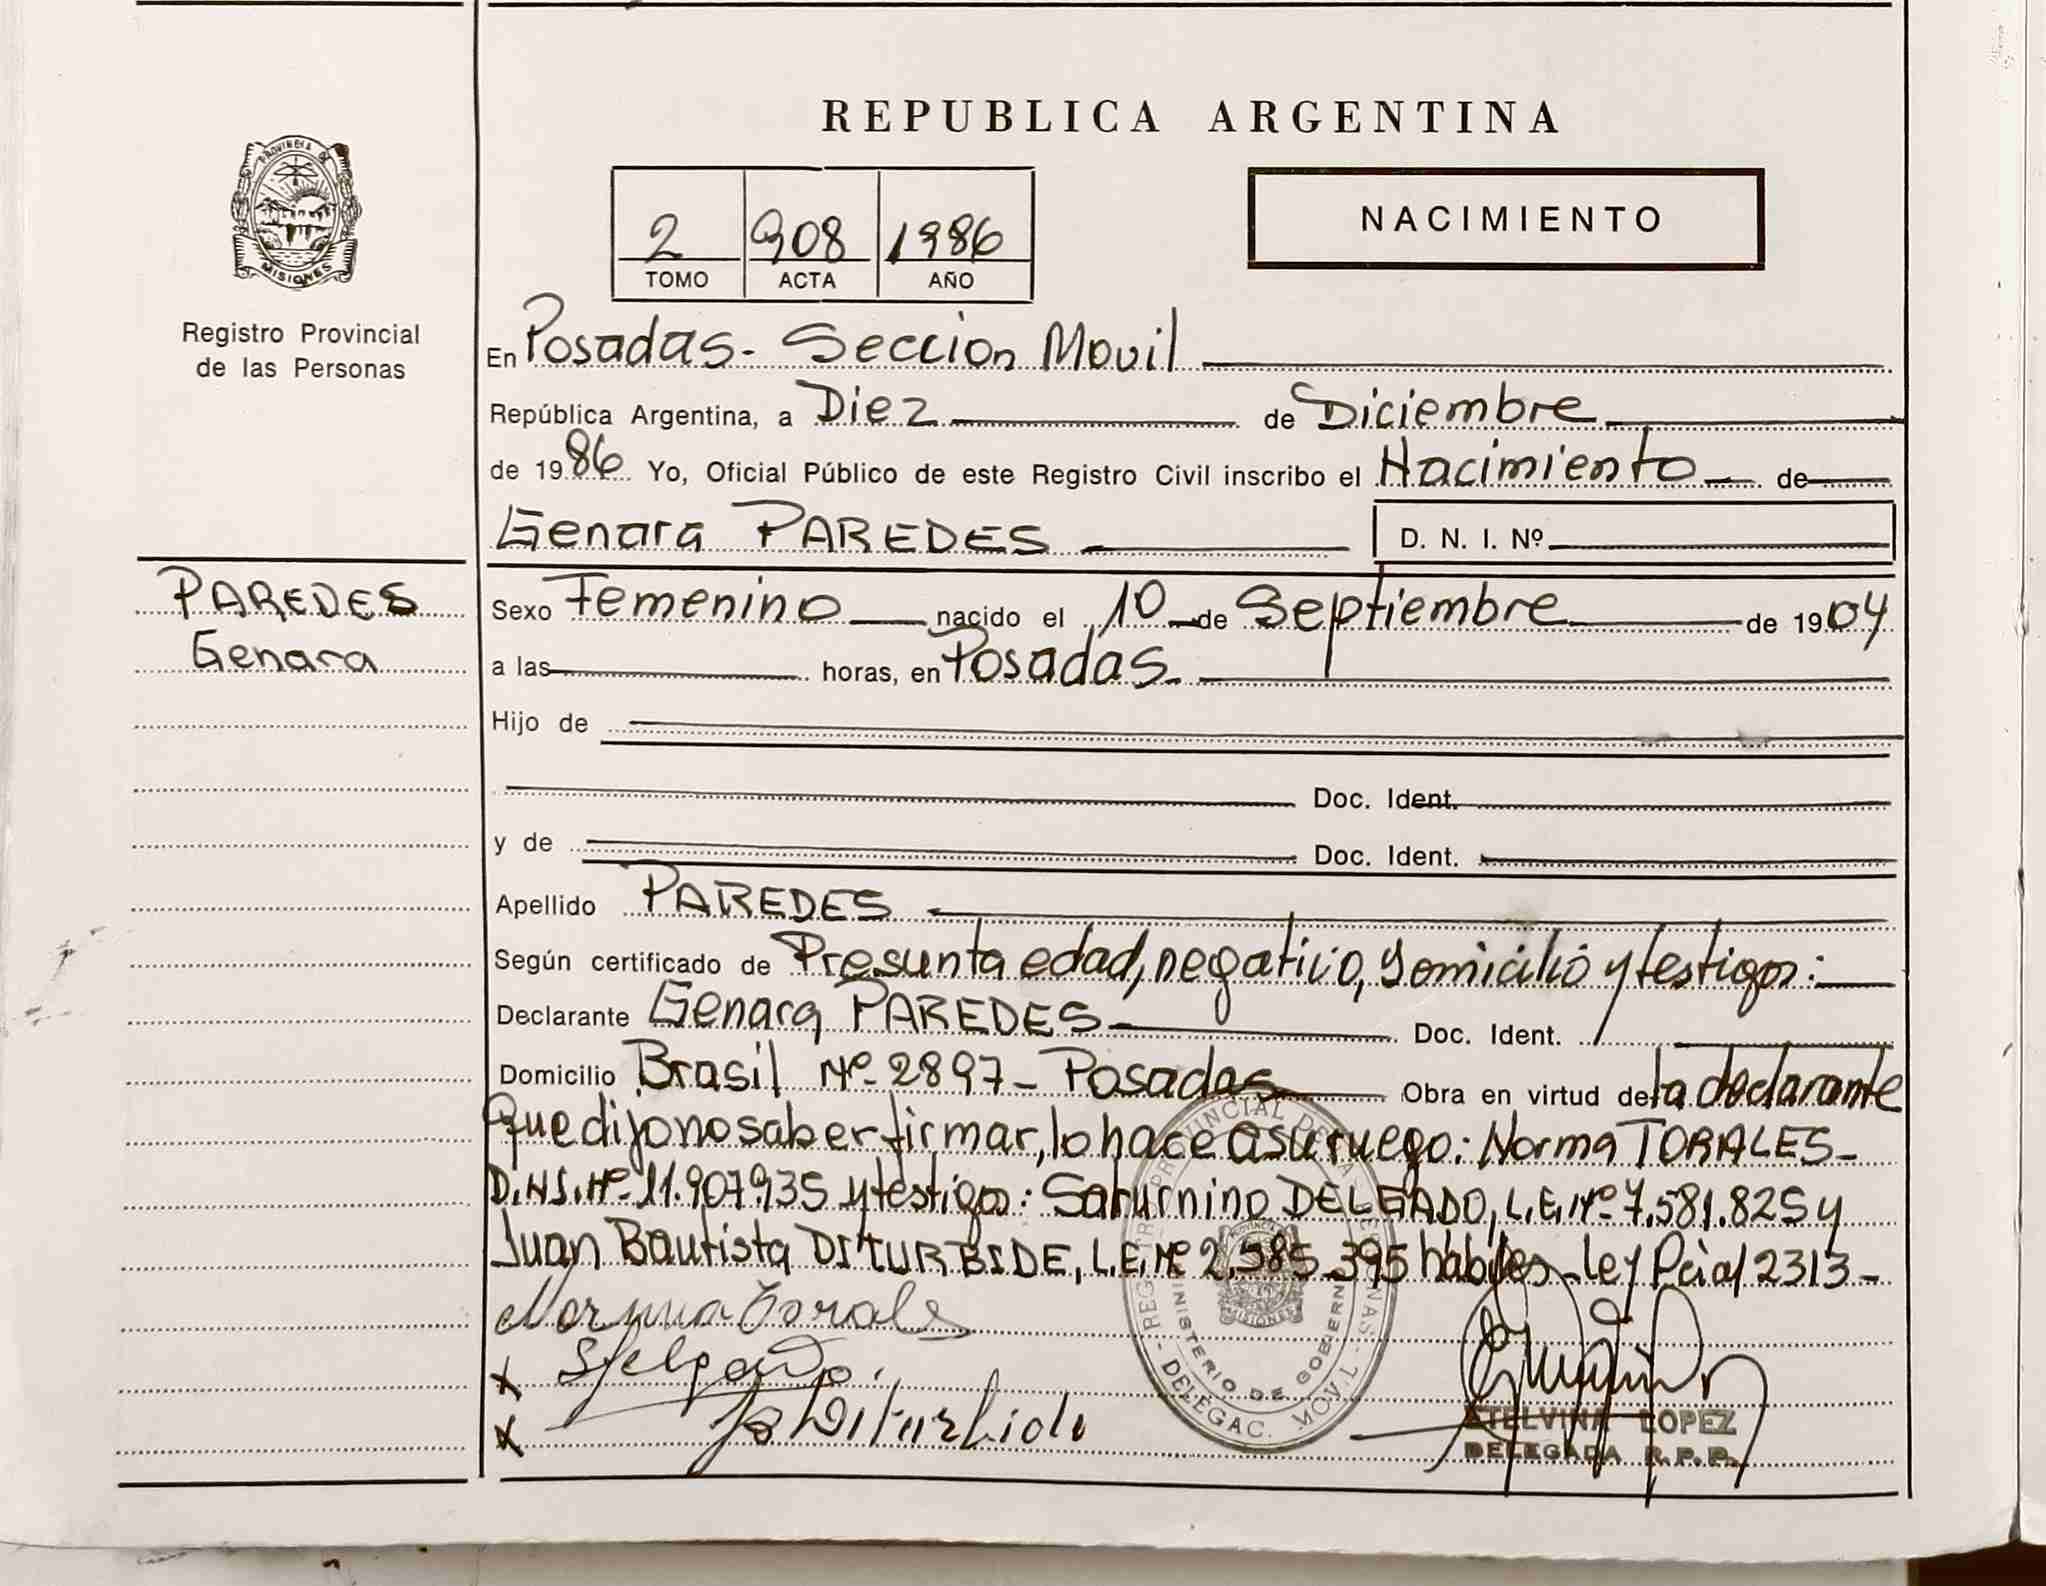 REPUBLICA ARGENTINA
PROVINCIA DE
MISIONES
Registro Provincial
de las Personas
2 908 1986
TOMO ACTA AÑO
NACIMIENTO
En Posadas- Seccion Movil
República Argentina, a Diez de Diciembre
de 1986 Yo, Oficial Público de este Registro Civil inscribo el Nacimiento de
Genara PAREDES D. N. I. Nº
PAREDES
Genara
Sexo Femenino nacido el 10 de Septiembre de 1904
a las horas, en Posadas
Hijo de
Doc. Ident.
y de Doc. Ident.
Apellido PAREDES
Según certificado de Presunta edad, negativo, domicilio y testigos:
Declarante Genara PAREDES Doc. Ident.
Domicilio Brasil Nº 2897- Posadas Obra en virtud de la declarante
que dijo no saber firmar, lo hace a su ruego: Norma TORALES-
D.N.I. Nº 11.907.935 y testigos: Saturnino DELGADO, L.E. Nº 7.581.825 y
Juan Bautista DITURBIDE, L.E. Nº 2.985.395 hábiles- ley Pcial 2313-
Norma Torales
x SDelgado.
x JBDiturbide
REGISTRO PROVINCIAL DE LAS PERSONAS
MINISTERIO DE GOBIERNO
DELEGAC. MOVIL
ETELVINA LOPEZ
DELEGADA R.P.P.